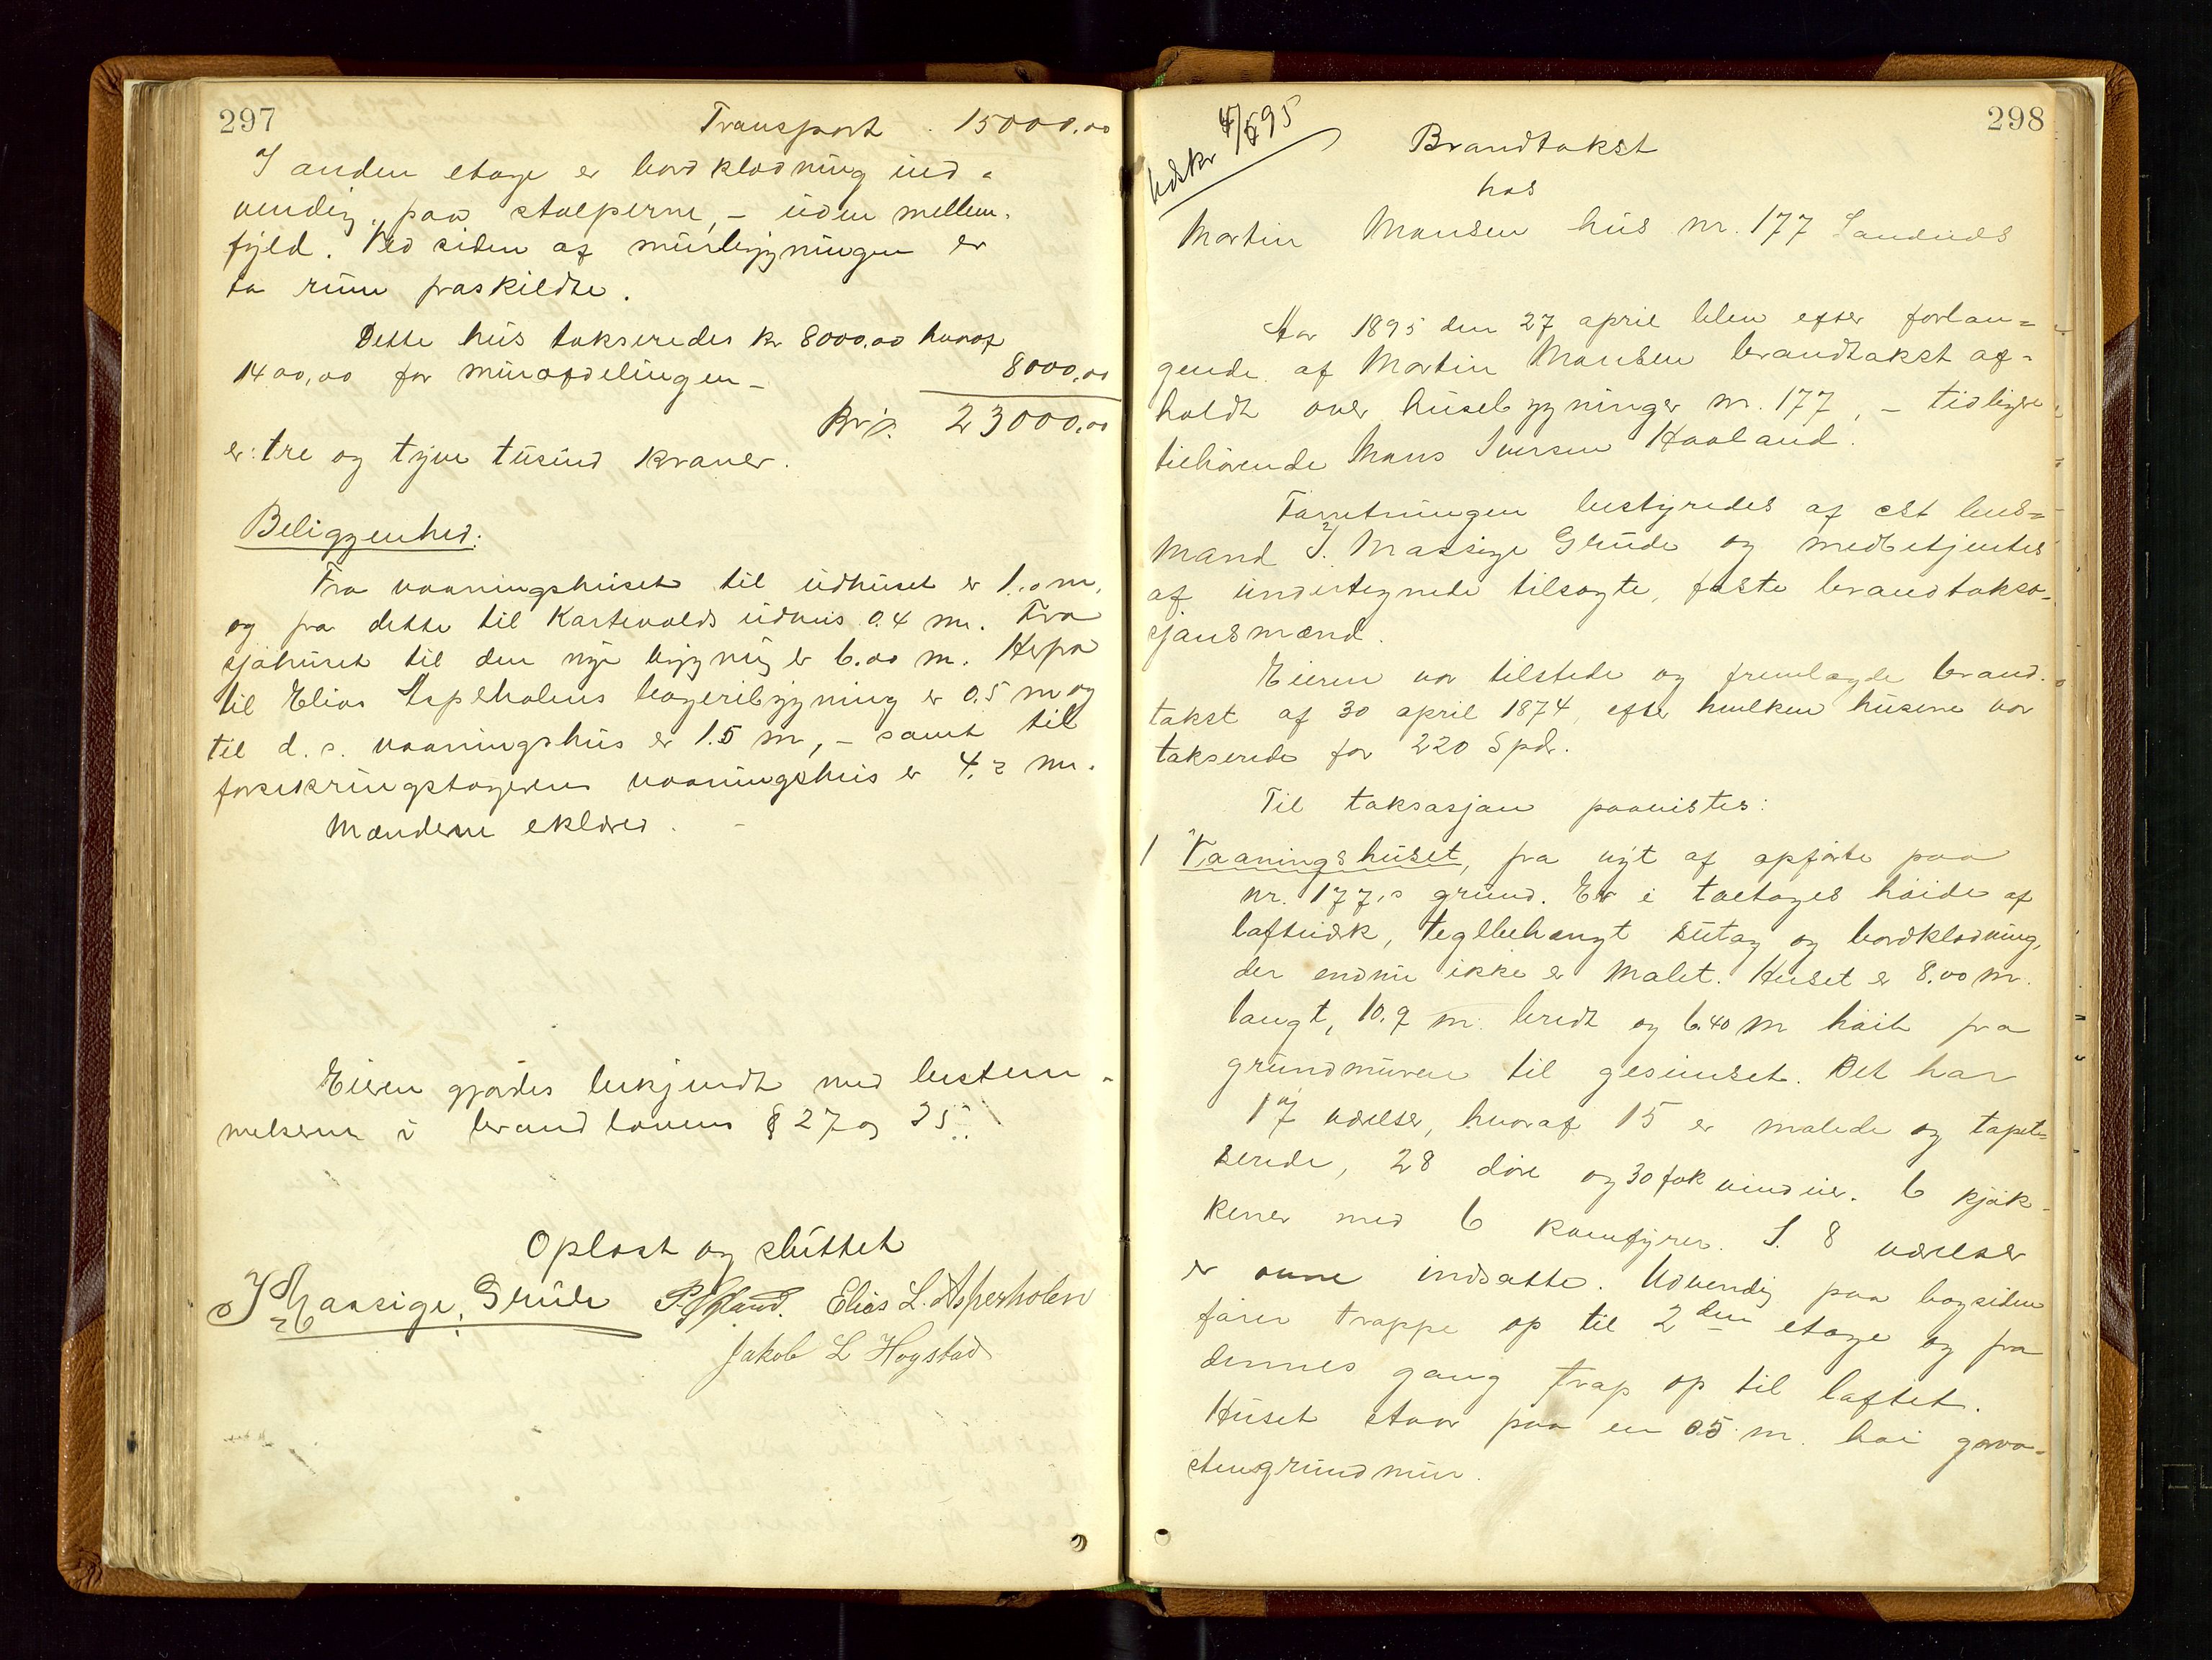 297
Transport 15000.00
I anden etage er bordklædning ind-
vendig paa stolperne, – uden mellem-
fyld. Ved siden af murbygningen er
to rum fraskildte.
Dette hus takseredes kr 8000,00 hvoraf
1400,00 for murafdelingen – 8000,00
Kr. 23000.00
er: tre og tyve tusind kroner.
Beliggenhed:
Fra vaaningshuset til udhuset er 1.0 m,
og fra dette til Kartevolds udhus 0.4 m. Fra
sjøhuset til den nye bygning er 6.00 m. Herfra
til Elias Asperholens bageribygning er 0.5 m og
til d. s. vaaningshus er 1.5 m, – samt til
forsikringstagerens vaaningshus er 4.2 m.
Mændene eklæred. –
Eieren gjordes bekjendt med bestem-
melserne i brandlovens § 27 og 35.
Oplæst og sluttet
J Maasige Grude P. Eeland. Elias L. Asperholen
Jakob L Hogstad
298
Udskr 4/5 95
Brandtakst
hos
Martin Monsen hus nr. 177 Sandnæs
Aar 1895 den 27 april blev efter forlan=
gende af Martin Monsen brandtakst af-
holdt over husebygninger nr. 177, – tidligere
tilhørende Mons Iversen Haaland.
Forretningen bestyredes af cst lens=
mand J. Maasige Grude og medbetjentes
af undertegnede tilsagte, faste brandtaksa-
sjonsmænd.
Eieren var tilstede og fremlagde brand-
takst af 30 april 1874, efter hvilken husene var
takserede for 220 Spdr.
Til taksasjon paavistes:
1 Vaaningshuset, fra nyt af opførte paa
nr. 177,s grund. Er i toetages høide af
laftværk, teglbehængt sutag og bordklædning,
der endnu ikke er malet. Huset er 8.00 m.
langt, 10.9 m. bredt og 6.40 m høit fra
grundmuren til gesimset. Det har
17 værelser, hvoraf 15 er malede og tapet-
serede, 28 døre og 30 fak vinduer. 6 kjøk-
kener med 6 komfyrer. I 8 værelser
er ovne indsatte. Udvendig paa bagsiden
fører trappe op til 2den etage og fra
dennes gang trap op til loftet.
Huset staar paa en 0.5 m. høi graa-
stensgrundmur.